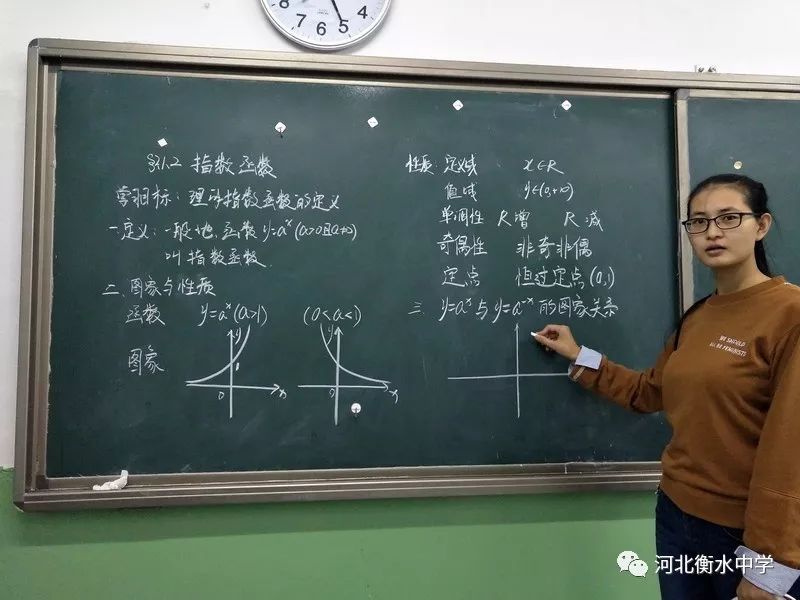 指数函数
学习目标：理解指数函数的定义
一定义：一般地，函数 y=a^x (a>0且a≠0)
叫指数函数
二、图象与性质
函数 y=a^x (a>1) (0<a<1)
图象
y
x
0
1
y
x
0
性质：定义域 x∈R
值域 y∈(0,+∞)
单调性 R 增 R 减
奇偶性 非奇非偶
定点 恒过定点(0,1)
三、y=a^x与y=a^-x的图象关系
5
6
7
8
WE SHOULD
ALL BE FEMINISTS
河北衡水中学